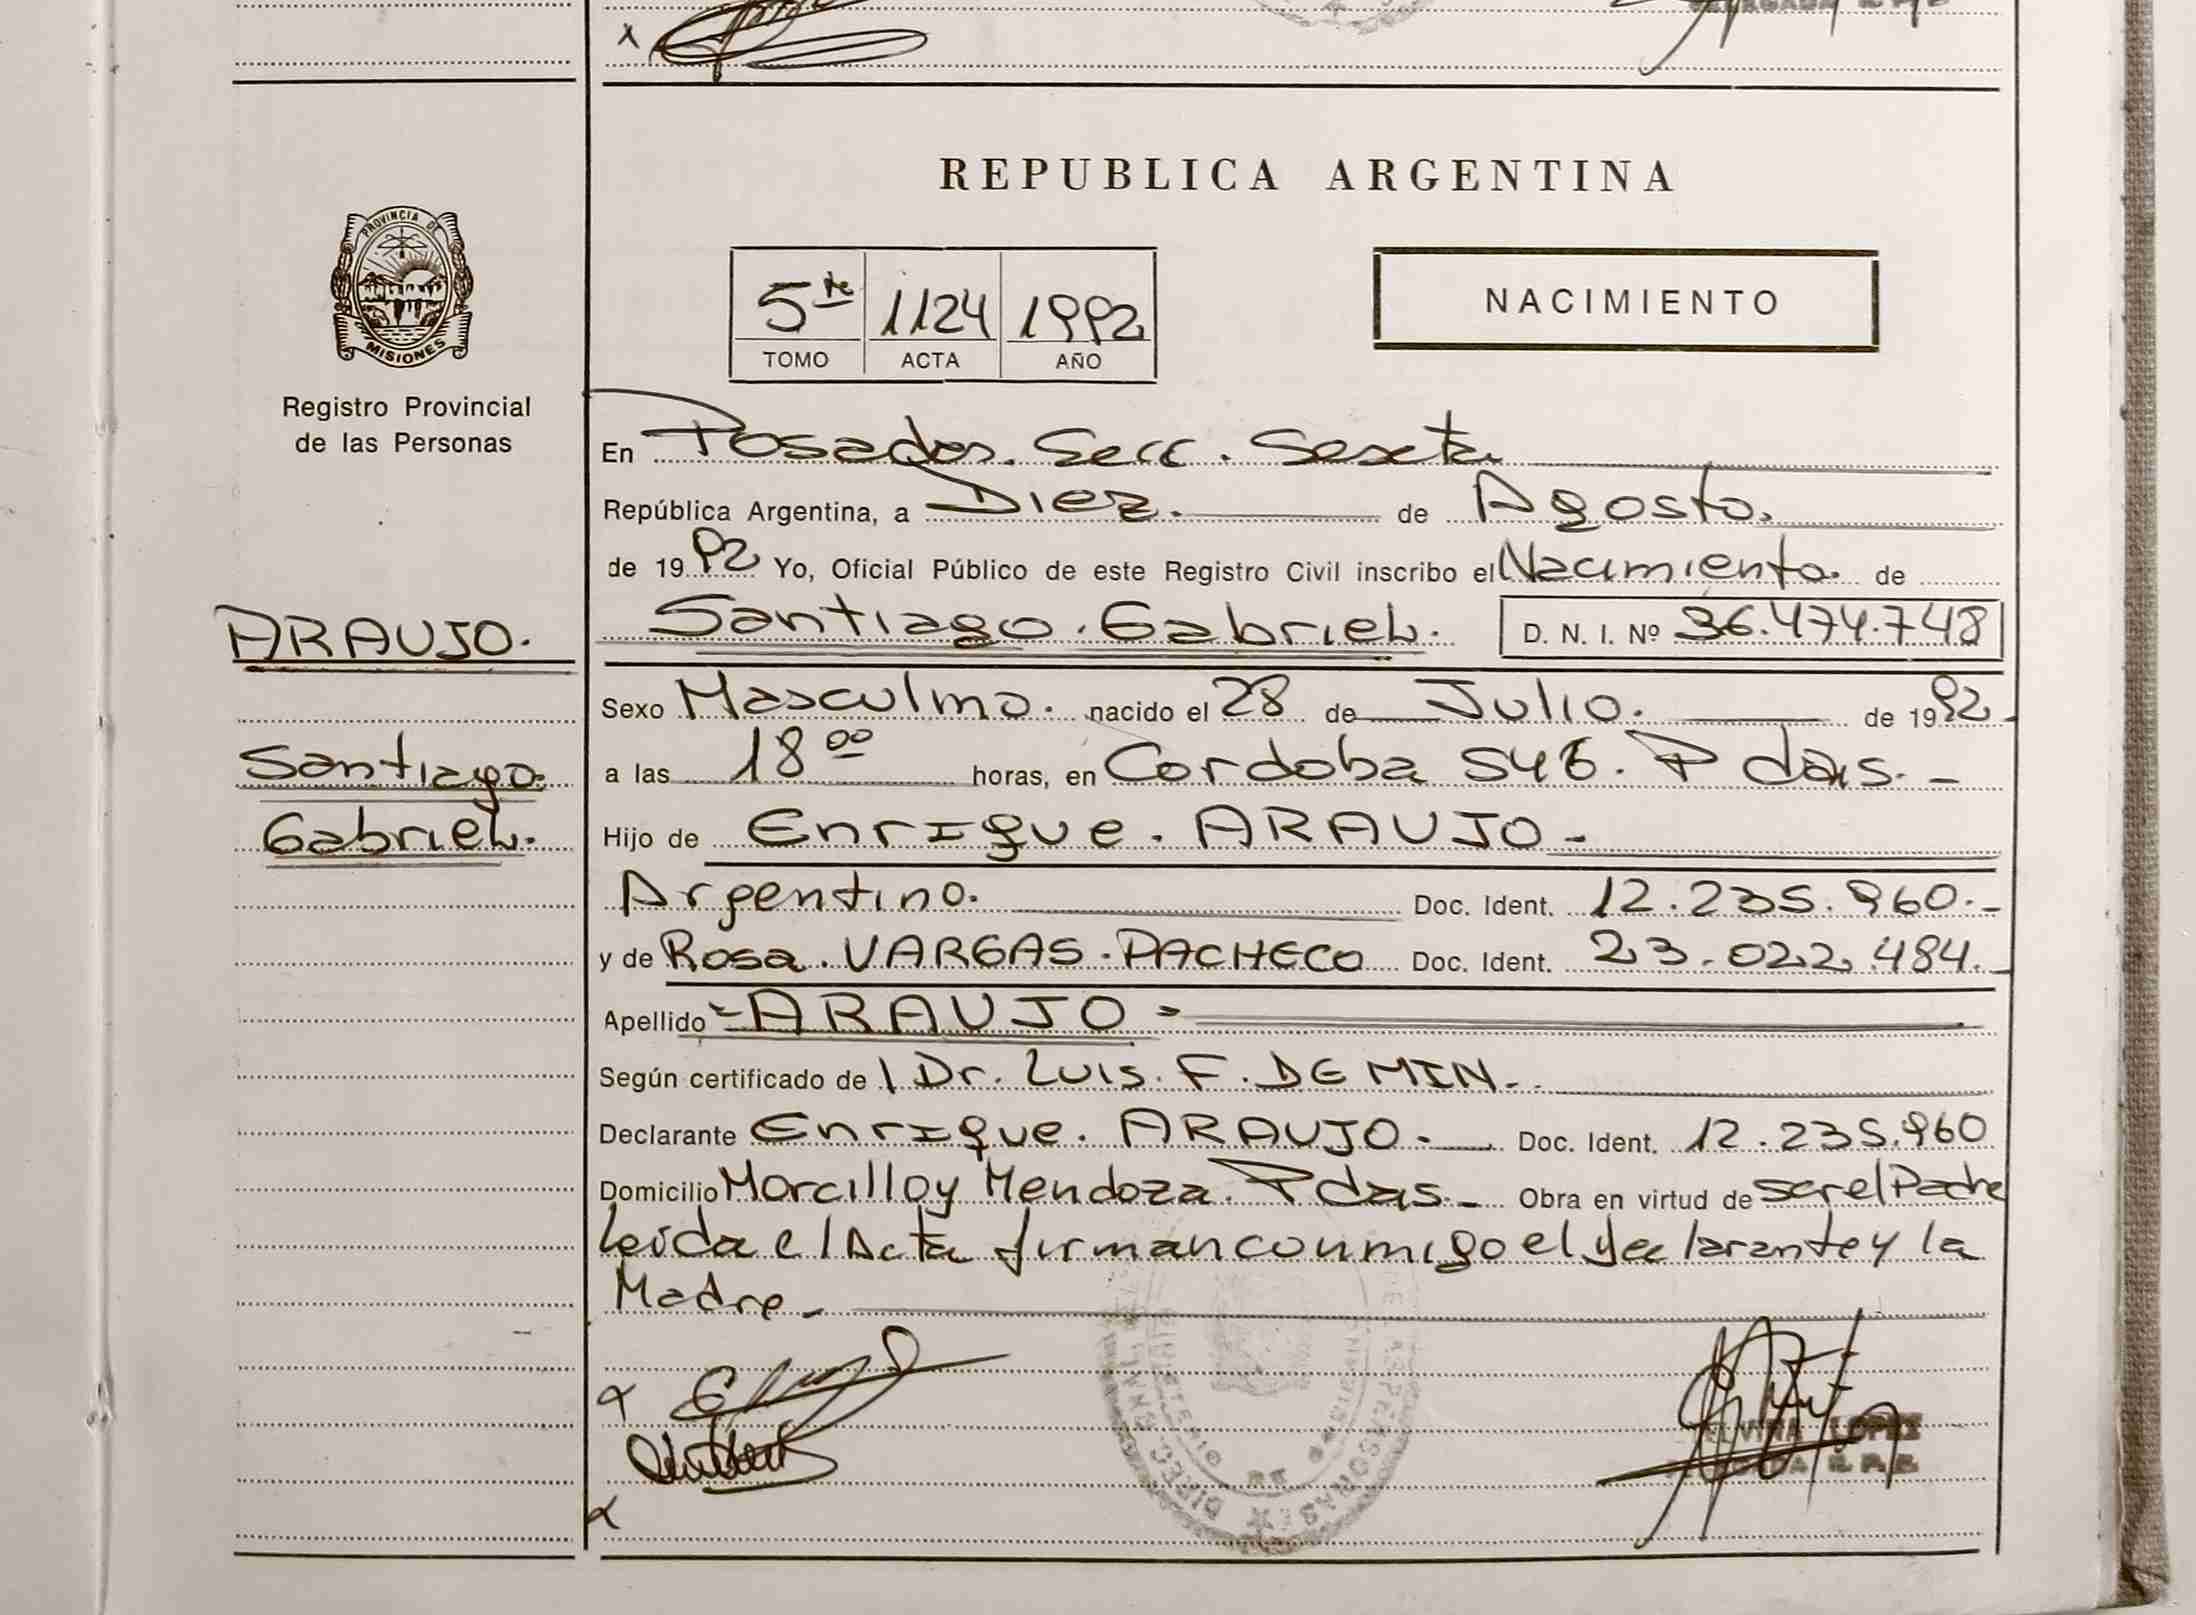 REPUBLICA ARGENTINA
PROVINCIA DE
MISIONES
Registro Provincial
de las Personas
5te 1124 1992
TOMO ACTA AÑO
NACIMIENTO
En Posadas. Secc. Sexta
República Argentina, a Diez. de Agosto.
de 1992 Yo, Oficial Público de este Registro Civil inscribo el Nacimiento. de
ARAUJO.
Santiago. Gabriel. D. N. I. Nº 36.474.748
Sexo Masculino. nacido el 28 de Julio. de 1992.
Santiago.
a las 18 00 horas, en Cordoba 546. Pdas. -
Gabriel.
Hijo de Enrique. ARAUJO -
Argentino. Doc. Ident. 12.235.960.-
y de Rosa. VARGAS. PACHECO Doc. Ident. 23.022.484.-
Apellido - ARAUJO -
Según certificado de l Dr. Luis. F. DEMIN.
Declarante Enrique. ARAUJO. Doc. Ident. 12.235.960
Domicilio Morcillo y Mendoza. Pdas. - Obra en virtud de ser el Padre
Leída el Acta firman conmigo el declarante y la
Madre -
ELVIRA LOPEZ
DELEGADA R. P. P.